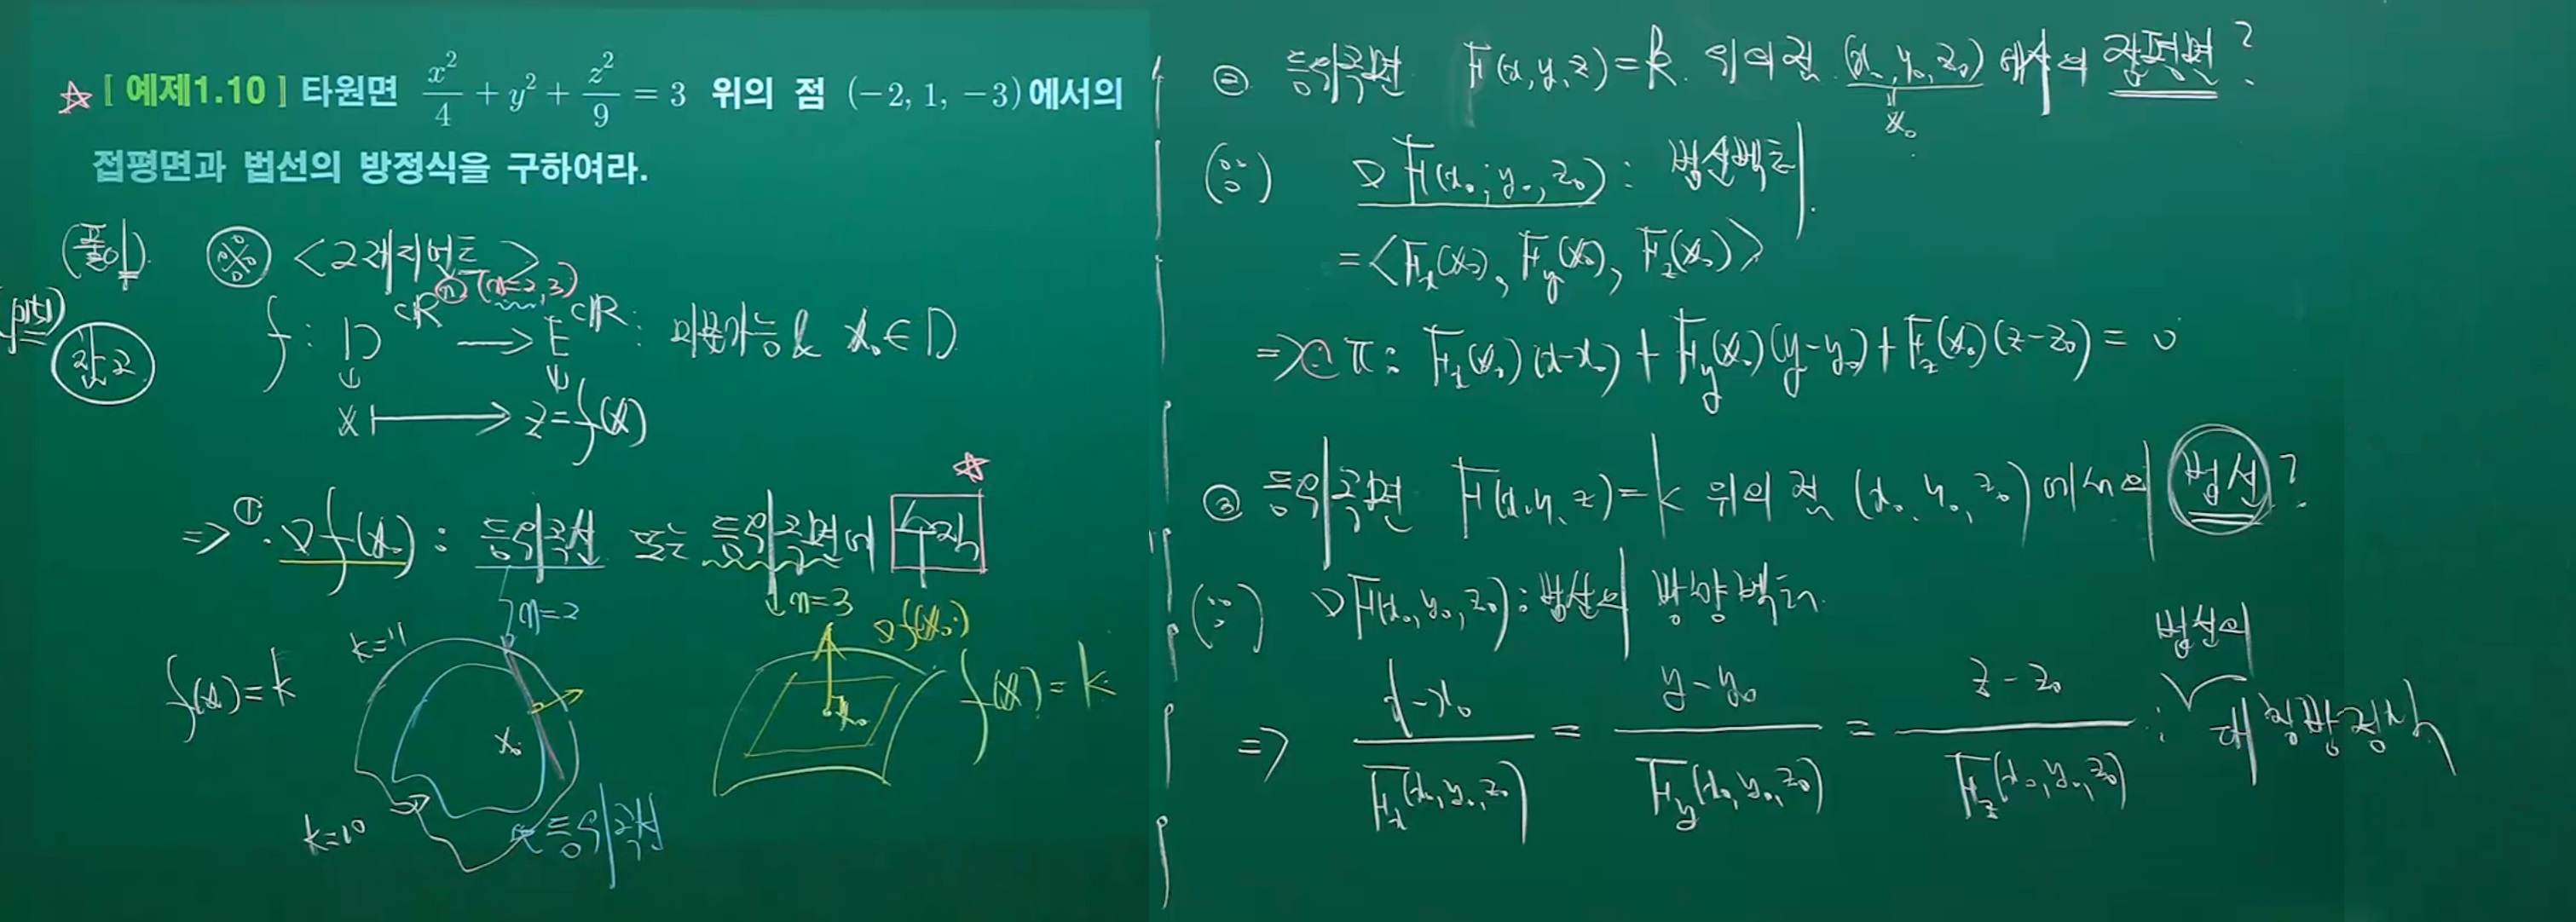 ☆ [ 예제1.10 ] 타원면 x²/4 + y² + z²/9 = 3 위의 점 (−2, 1, −3)에서의
접평면과 법선의 방정식을 구하여라.
(풀이) ※ <그래디언트>
(n=2,3)
참고 f : D ⊂ℝⁿ → E ⊂ℝ : 미분가능 & x₀ ∈ D
x ↦ z = f(x)
⇒ ① ∇f(x₀) : 등위곡선 또는 등위곡면에 수직
n=2 n=3
k=11 ∇f(x₀)
f(x) = k x₀ x₀ f(x) = k
k=10 등위곡선
② 등위곡면 F(x, y, z) = k 위의 점 (x₀, y₀, z₀) 에서의 접평면?
x₀
(∵) ∇F(x₀, y₀, z₀) : 법선벡터
= <Fx(x₀), Fy(x₀), Fz(x₀)>
⇒ π : Fx(x₀)(x−x₀) + Fy(x₀)(y−y₀) + Fz(x₀)(z−z₀) = 0
③ 등위곡면 F(x, y, z) = k 위의 점 (x₀, y₀, z₀) 에서의 법선?
(∵) ∇F(x₀, y₀, z₀) : 법선의 방향벡터
법선의
⇒ (x−x₀)/Fx(x₀, y₀, z₀) = (y−y₀)/Fy(x₀, y₀, z₀) = (z−z₀)/Fz(x₀, y₀, z₀) : 대칭방정식